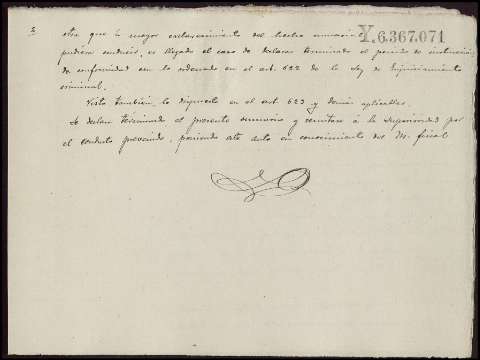 3
Y.6.367.071
otra que a mayor esclarecimiento del hecho sumarial
pudiera conducir, es llegado el caso de declarar terminado el periodo de instruccion
de conformidad con lo ordenado en el art. 622 de la ley de Enjuiciamiento
criminal.
Visto tambien lo dispuesto en el art 623 y demás aplicables.
Se declara terminado el presente sumario y remitase á la Superioridad por
el conducto prevenido, poniendo este auto en conocimiento del M. fiscal